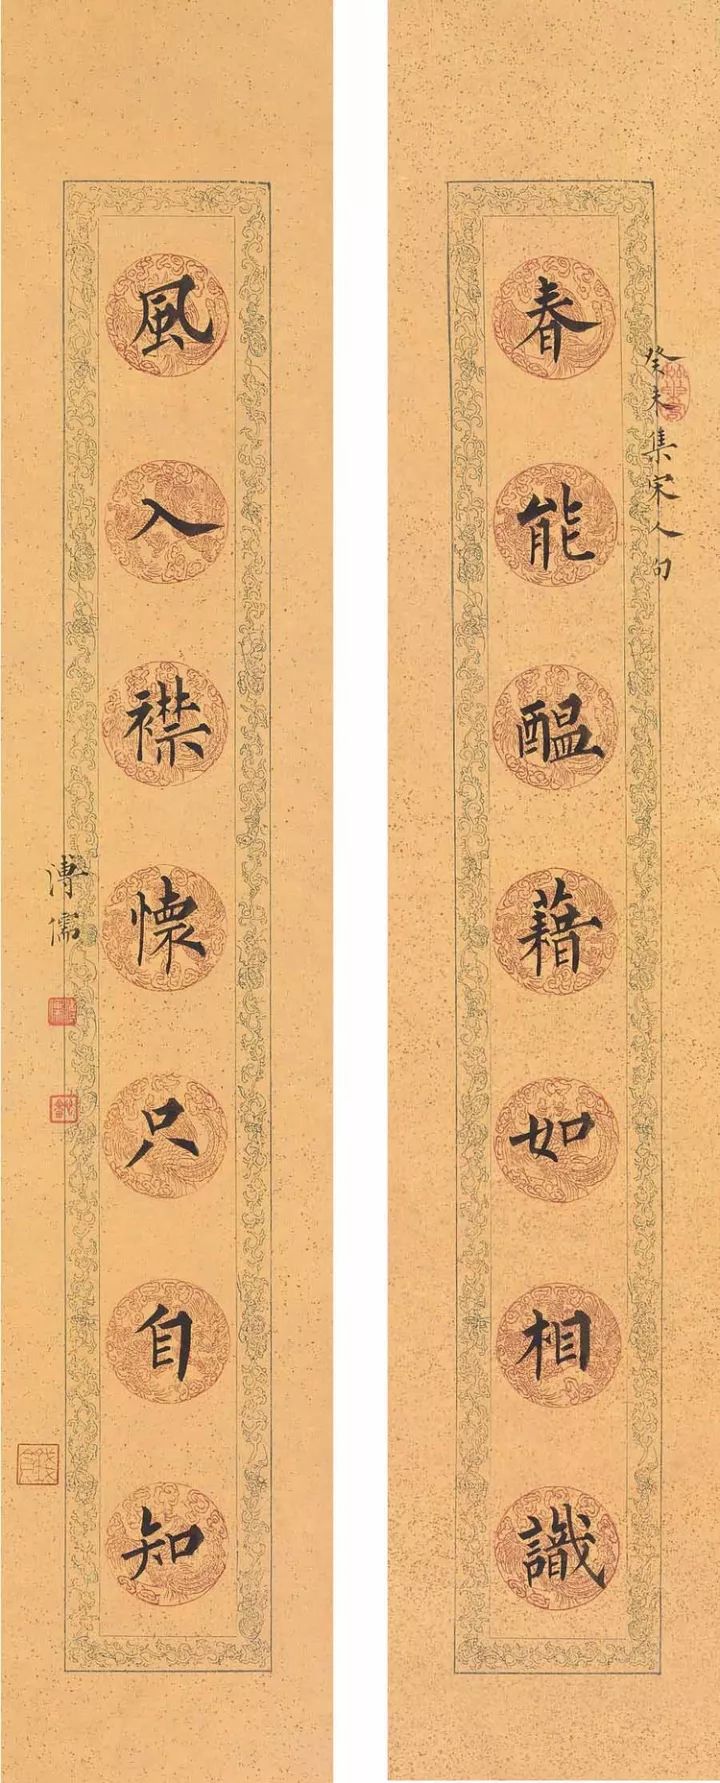 春能醖藉如相識
癸未集宋人句
風入襟懷只自知
溥儒